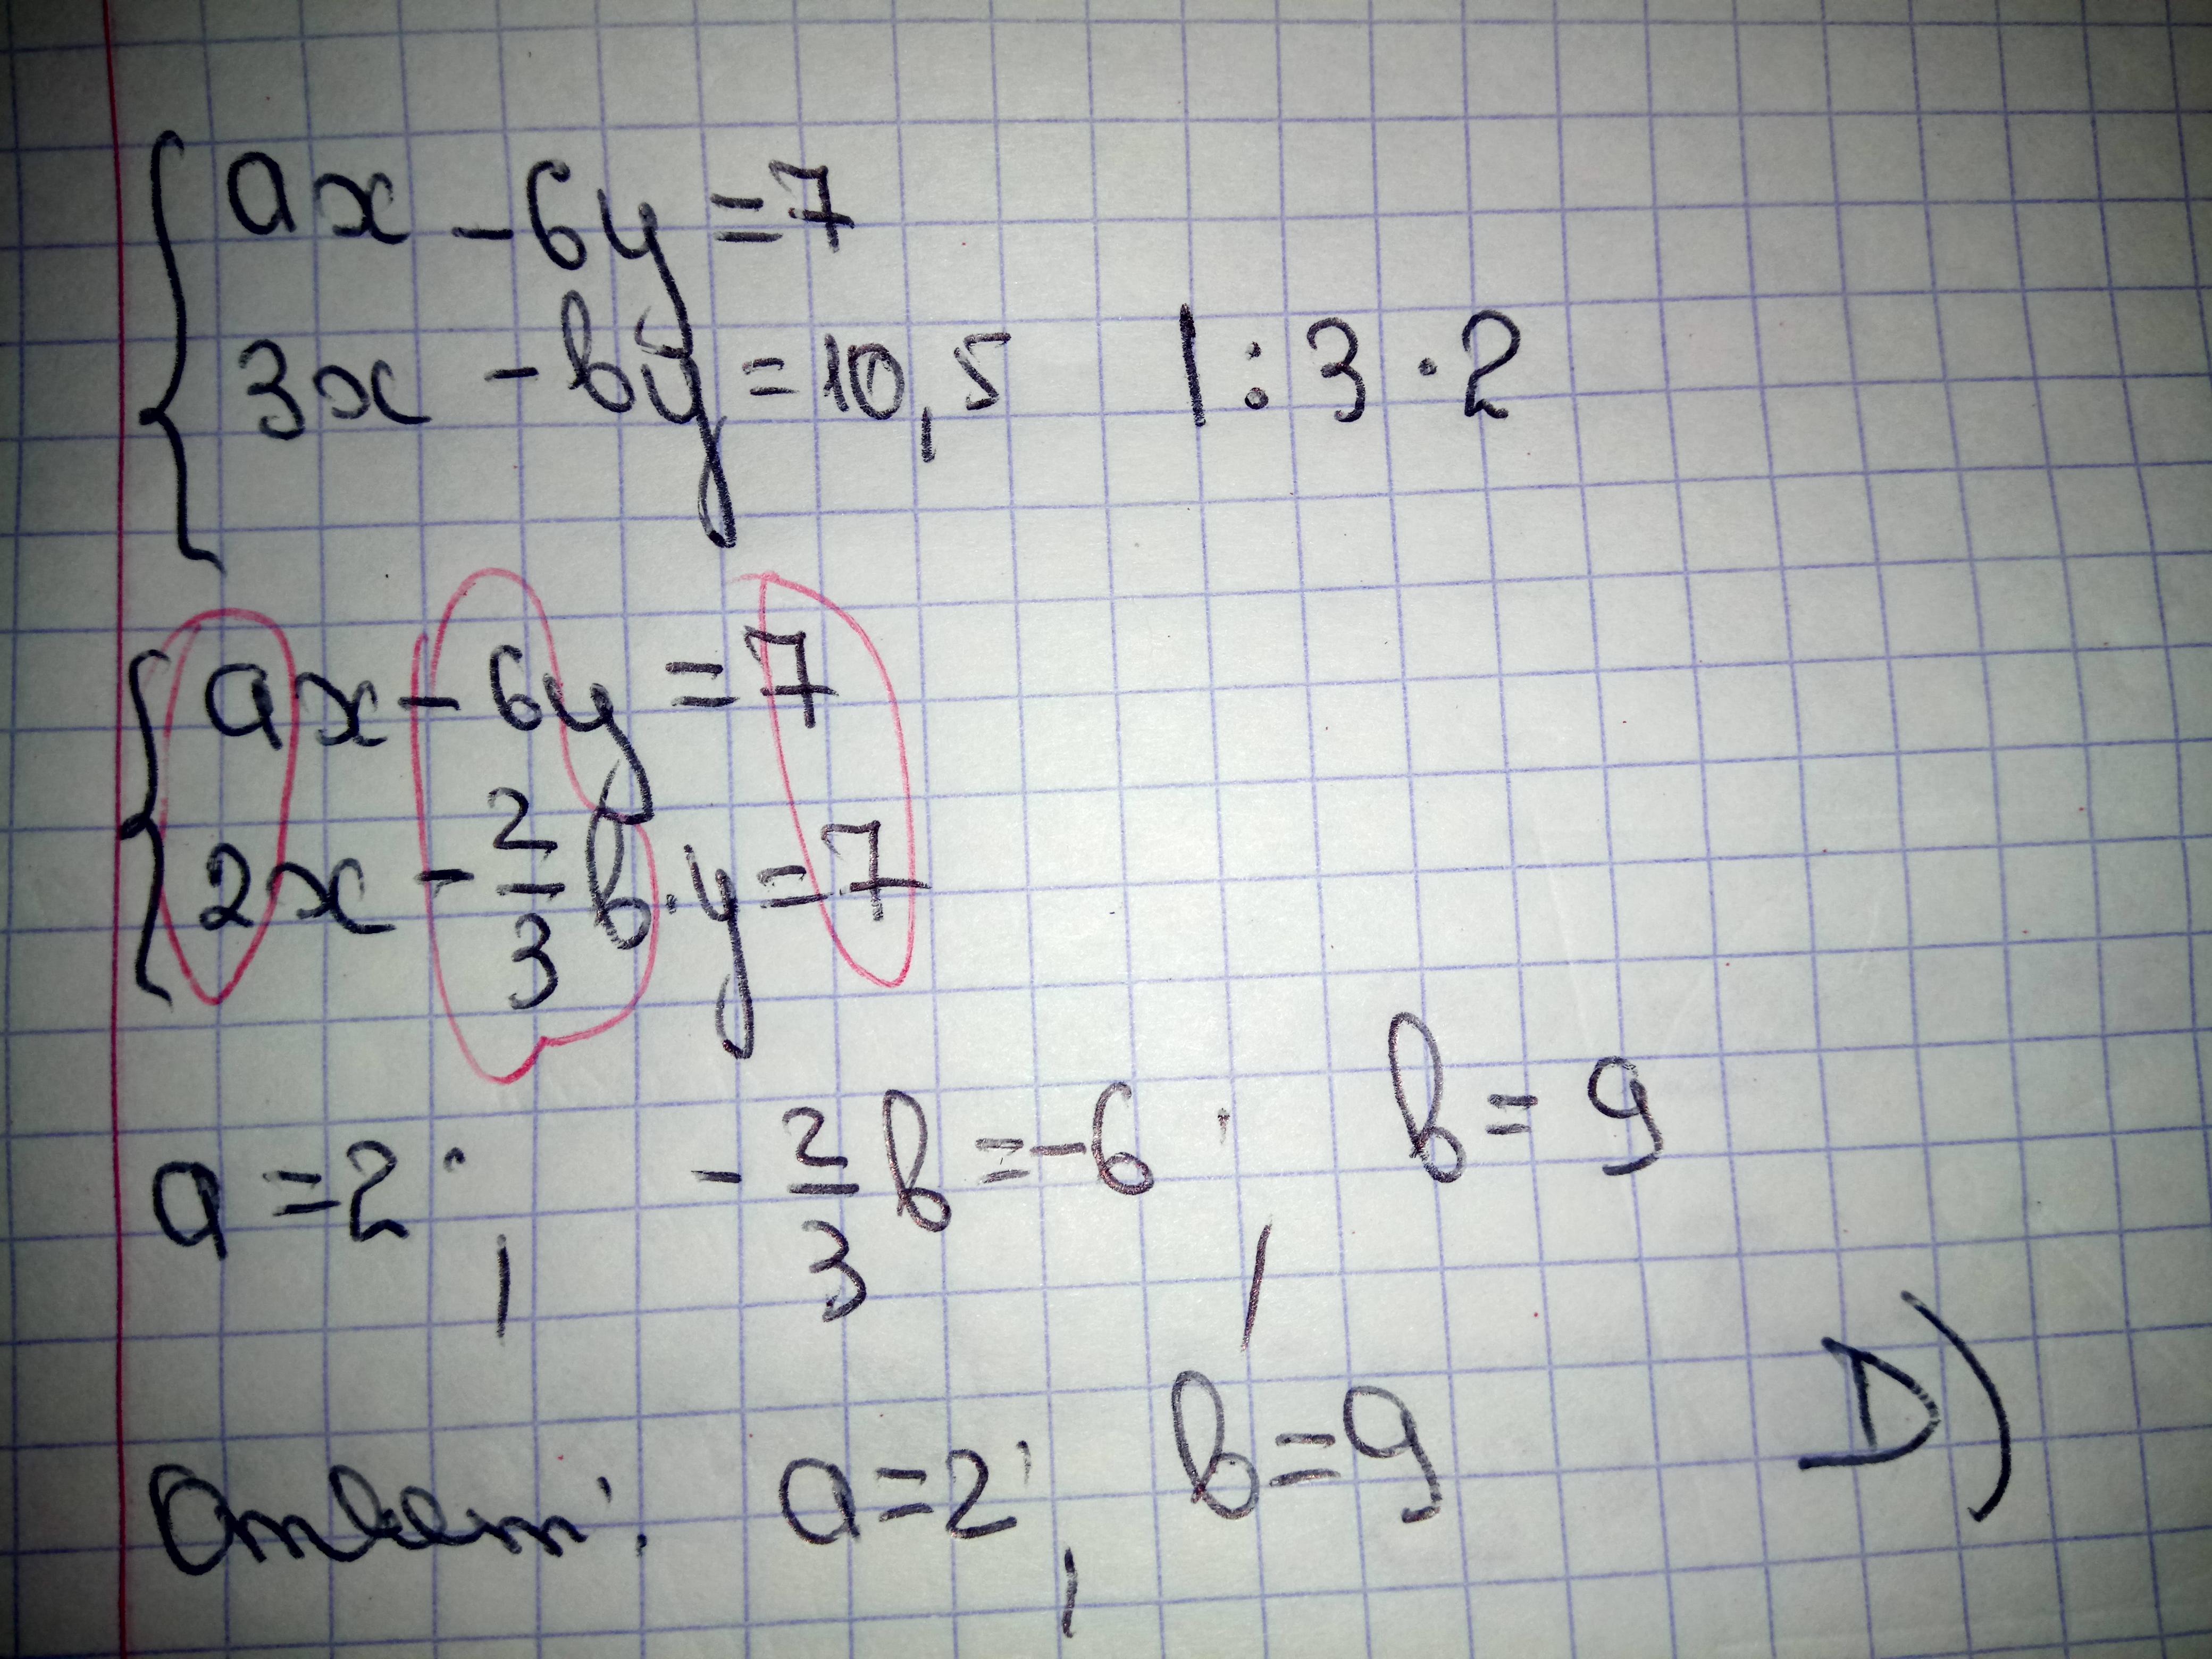 ax - 6y = 7
3x - вy = 10,5 | : 3 · 2
ax - 6y = 7
2x - 2/3 в · y = 7
a = 2; - 2/3 в = -6; в = 9
Ответ: a = 2; в = 9 D)